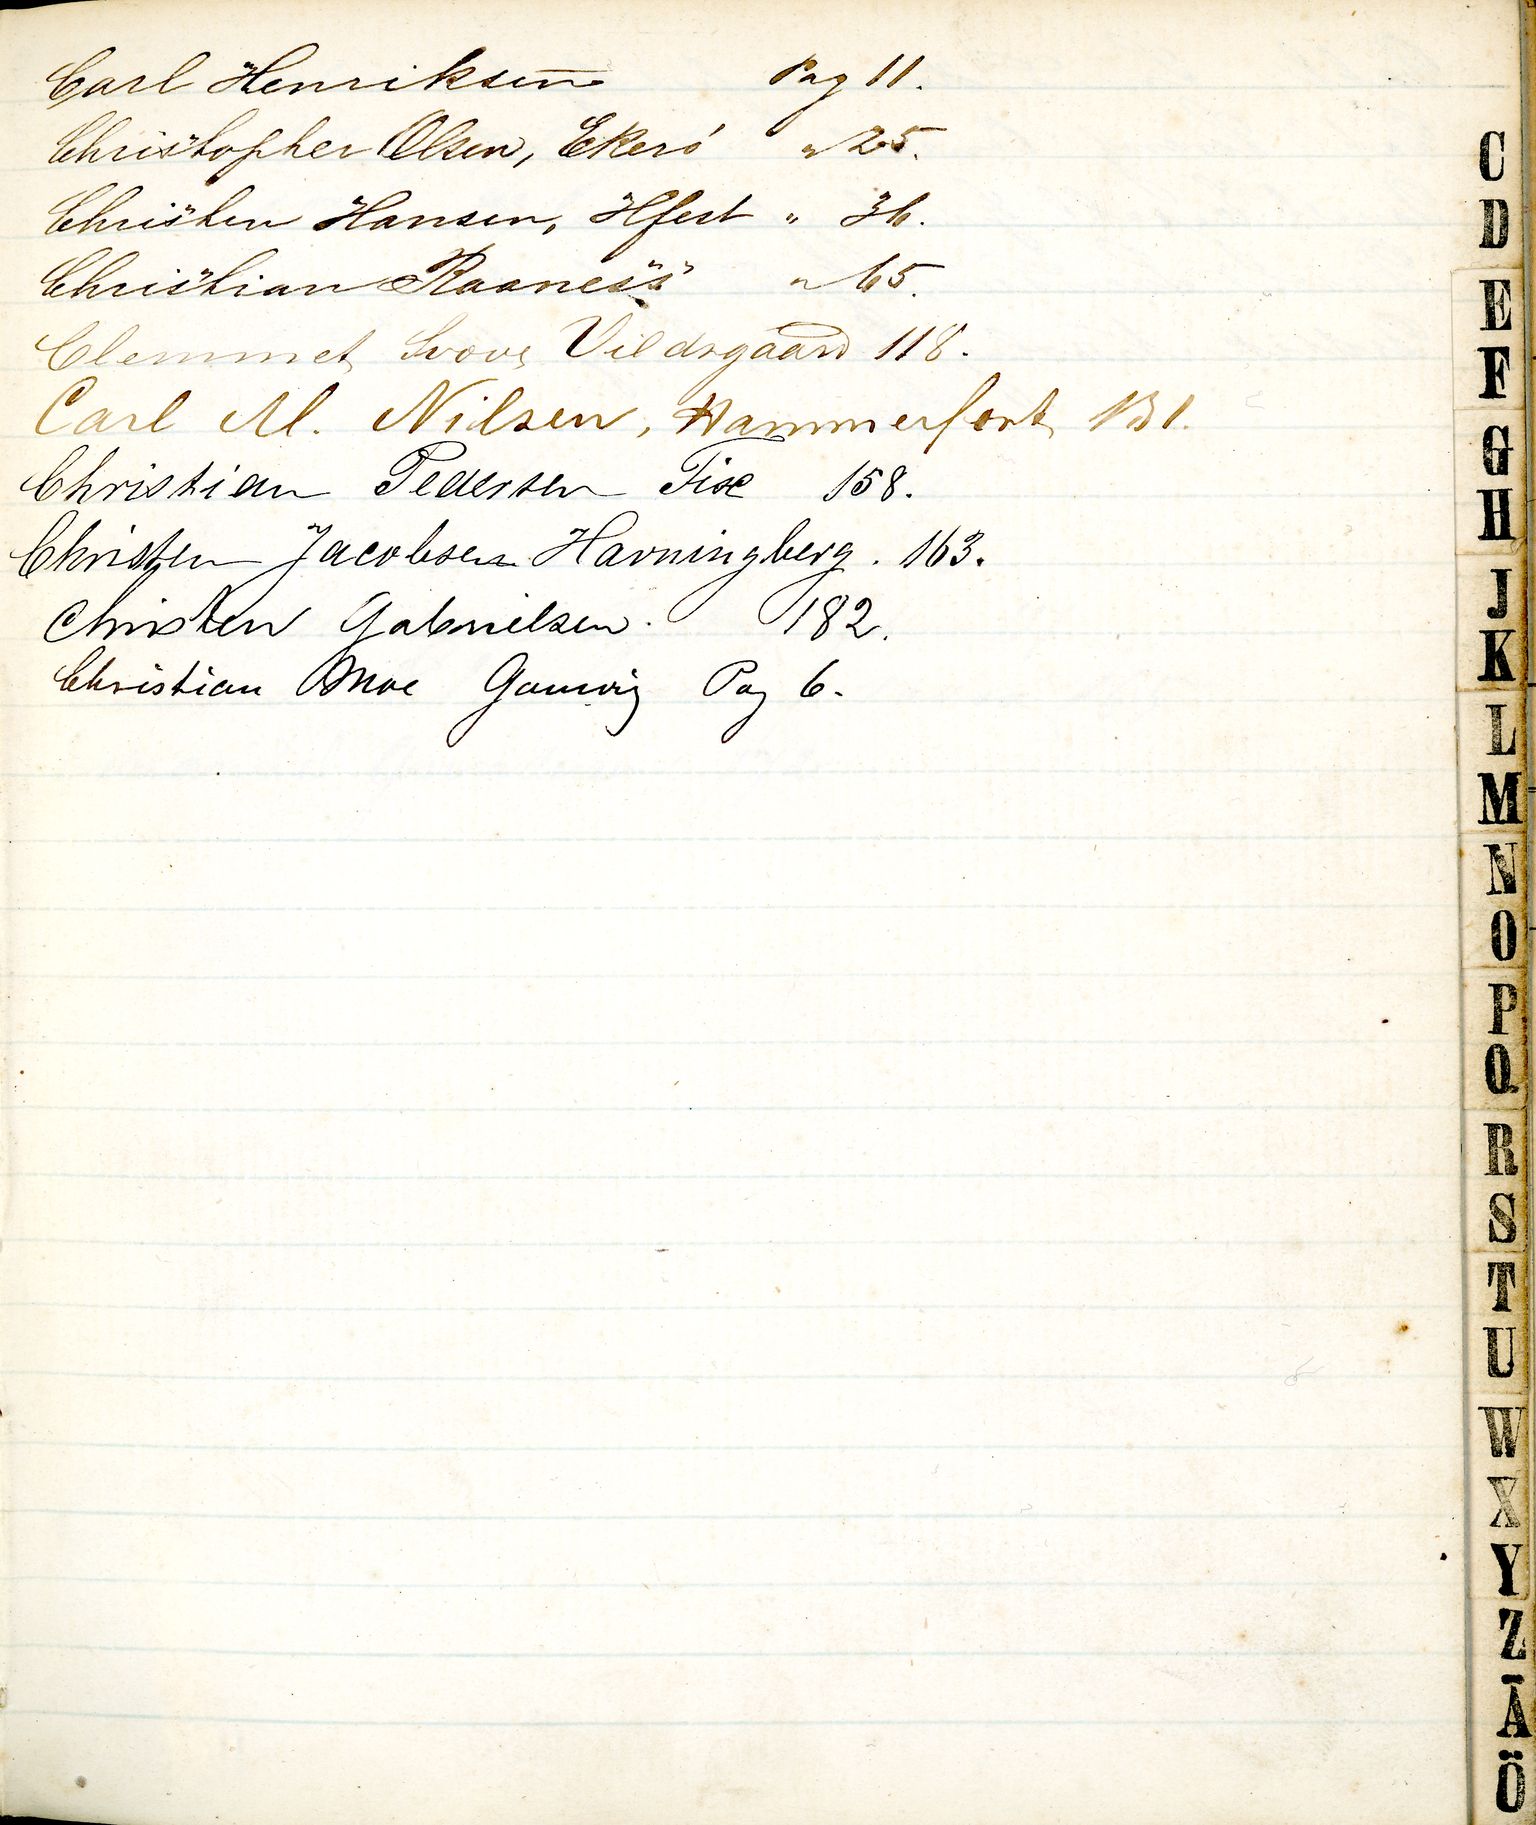 Carl Henriksen Pag 11.
Christopher Olsen, Ekerö " 25.
Christen Hansen, Hfest " 36.
Christian Raaness " 65.
Clemmet Vildsgaard 118.
Carl M. Nilsen, Hammerfest, 131.
Christian Pedersen 158.
Christen Jacobsen Havningberg. 163.
Christen Gabrielsen. 182.
Christian Moe Pag 6.
C
D
E
F
G
H
J
K
L
M
N
O
P
Q
R
S
T
U
W
X
Y
Z
Ā
Ö